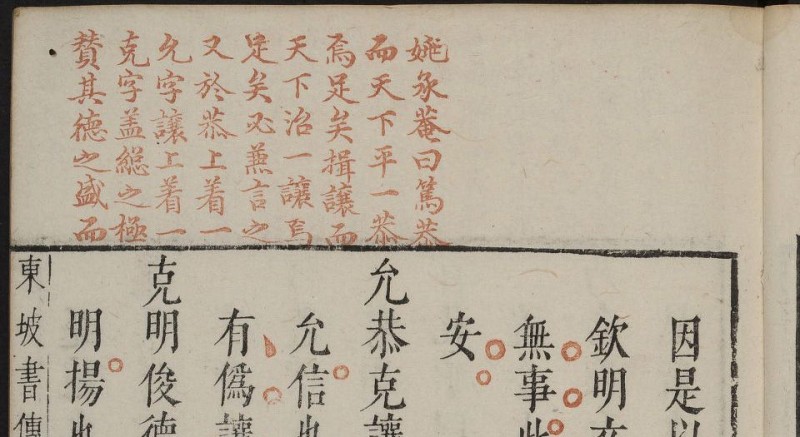 姚承菴曰篤恭
而天下平一恭
焉足矣揖讓而
天下治一讓焉
足矣必兼言之
又於恭上着一
允字讓上着一
克字盖總之極
賛其德之盛而
因是以
欽明文
無事此
安
允恭克讓
允信也
有僞讓
克明俊德
明揚也
東坡書傳